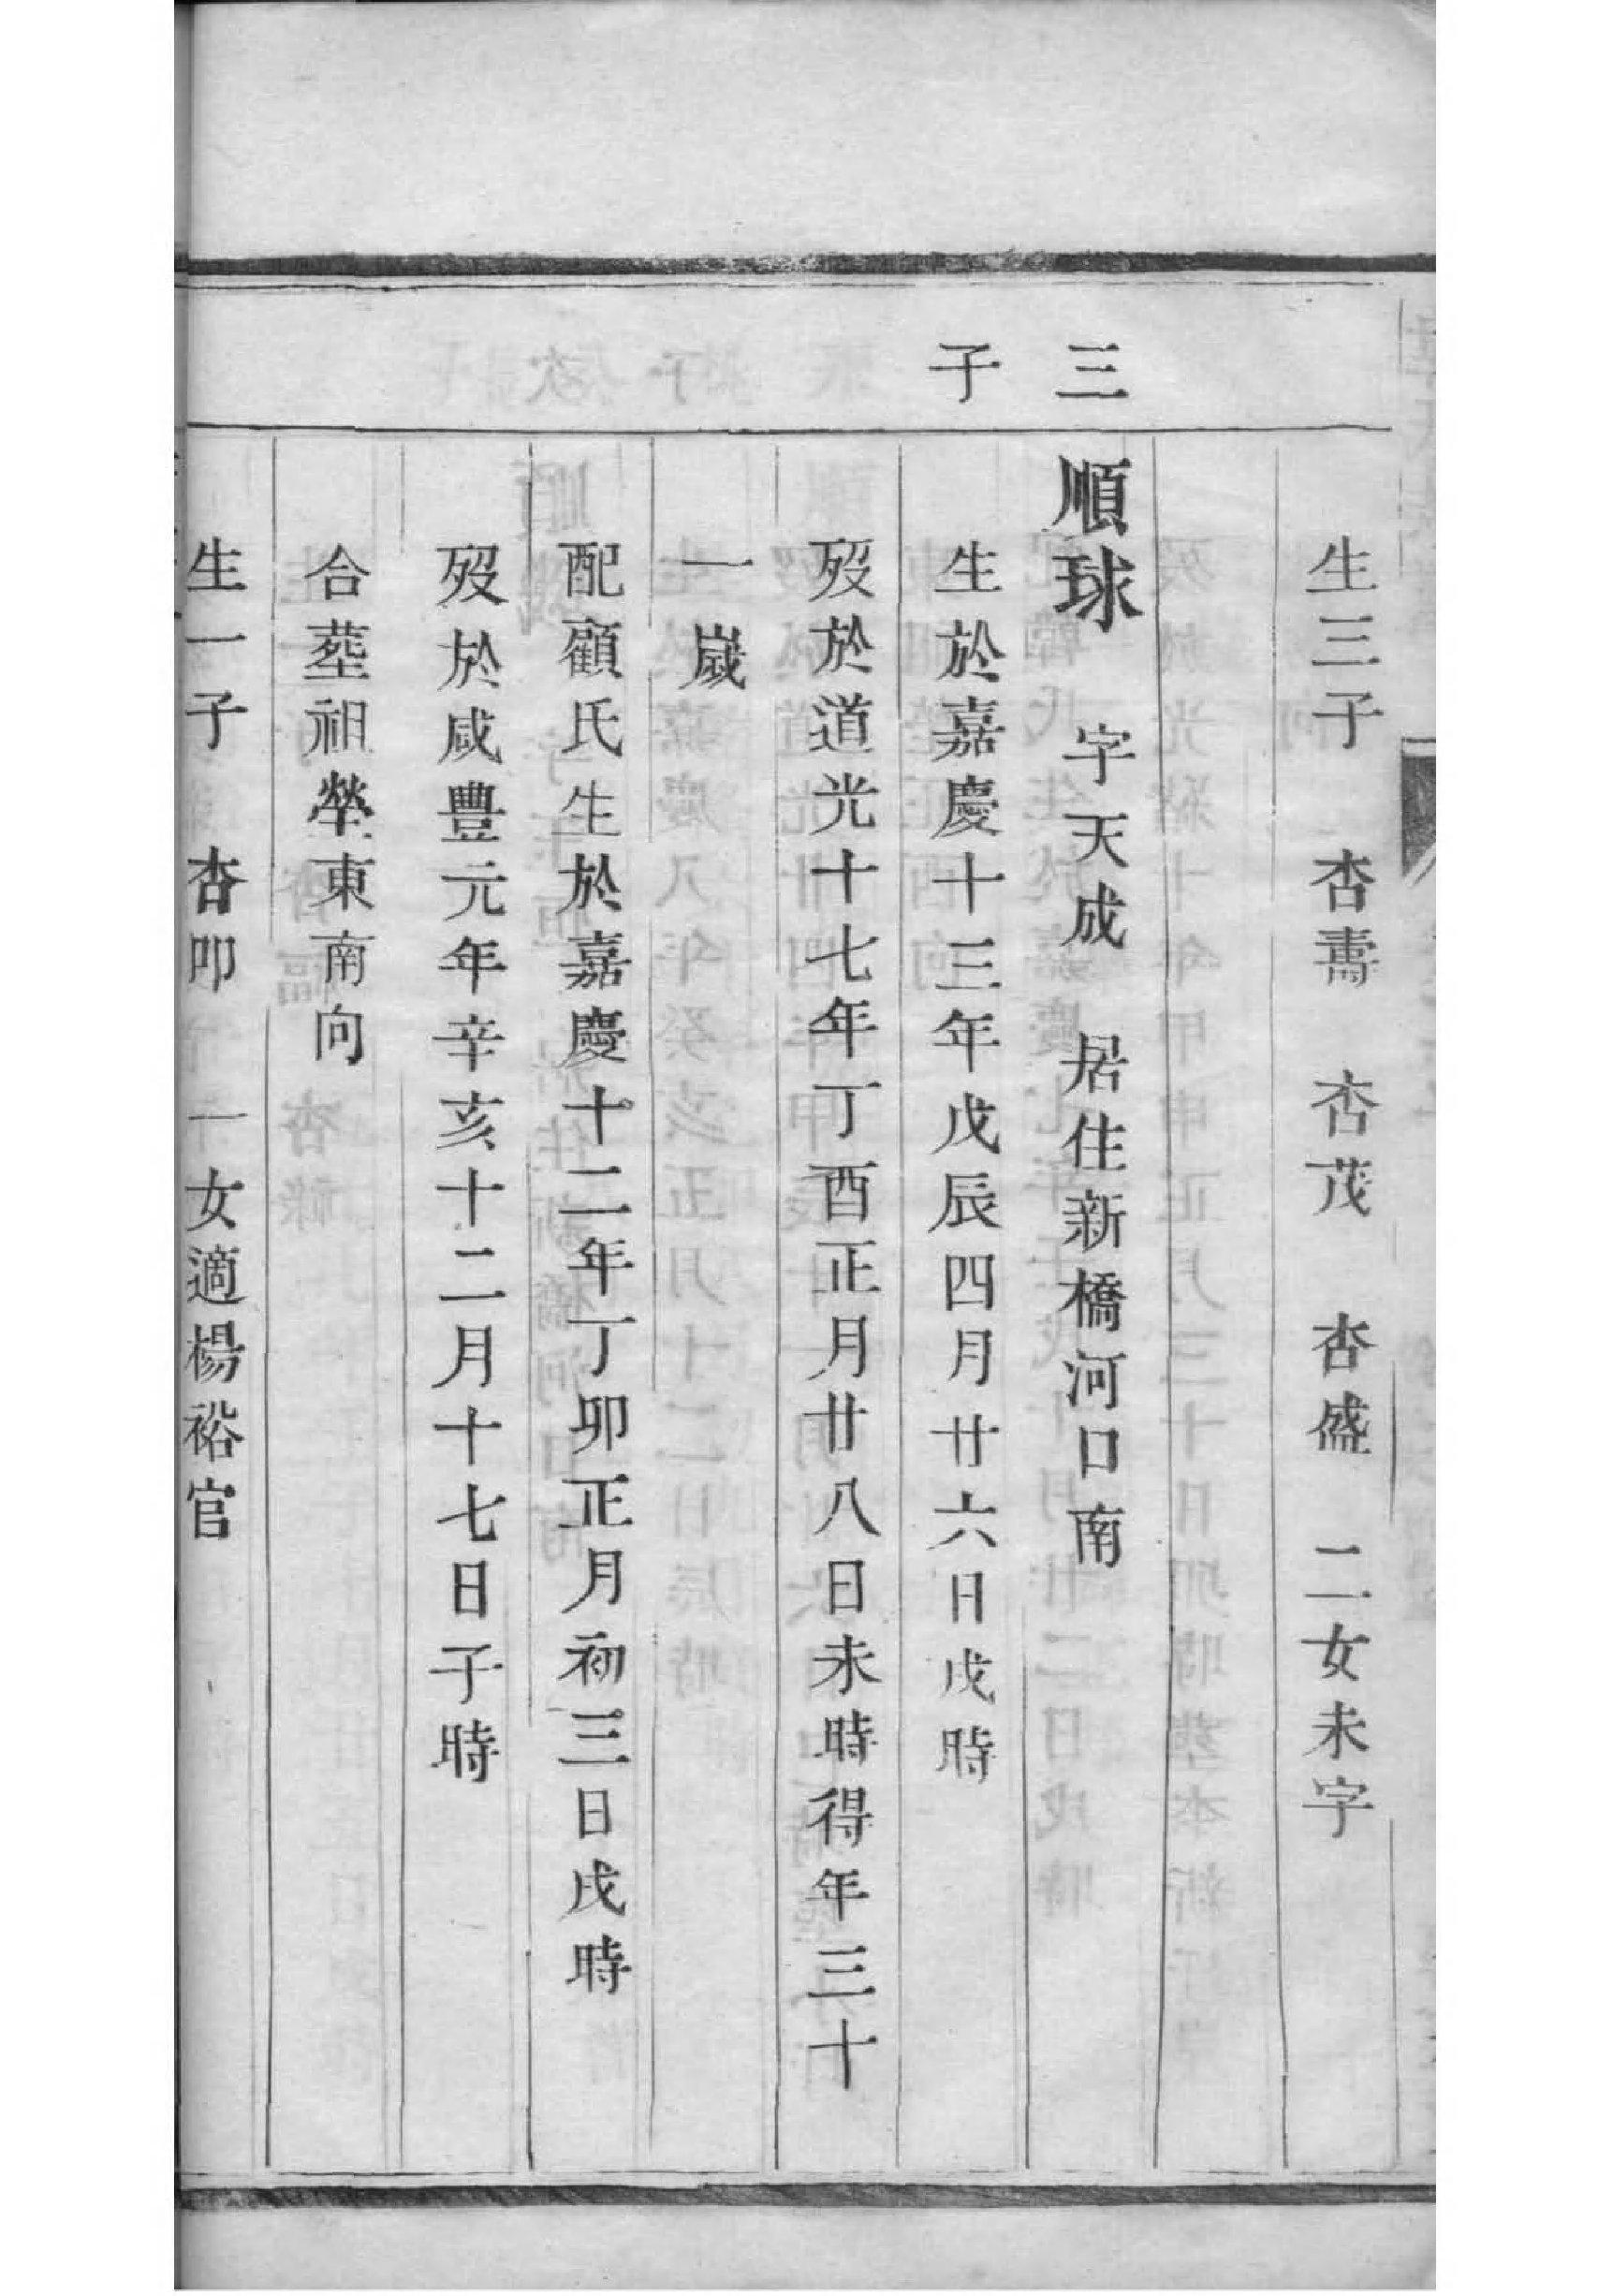 生三子　杏壽　杏茂　杏盛　二女未字
三
順球　字天成　居住新橋河口南
子
生於嘉慶十三年戊辰四月廿六日戌時
歿於道光十七年丁酉正月廿八日未時得年三十
一嵗
配顧氏生於嘉慶十二年丁卯正月初三日戌時
歿於咸豐元年辛亥十二月十七日子時
合塟祖塋東南向
生一子　杏卯　一女適楊裕官